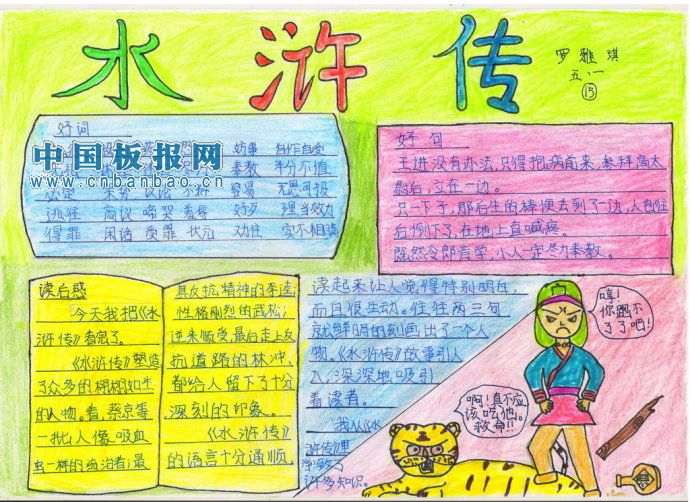 水浒传
罗雅琪
五、一
⑮
好词
妨事 自作自受
奉教 半分不值
容易 无恩可报
逃往 商议 啼哭 羞辱 好歹 理当效力
得罪 闲话 受罪 状元 劝住
中国板报网
www.cnbanbao.cn
好句
王进没有办法,只得抱病前来,参拜高太
尉后,立在一边。
只一下子,那后生的棒便丢到了一边,人也往
后倒下了,在地上直喊疼。
既然令郎肯学,小人一定尽力奉教。
读后感
今天我把《水
浒传》看完了。
《水浒传》塑造
了众多的栩栩如生
的人物。看,蔡京等
一批人像吸血
虫一样的统治者;最
具反抗精神的李逵;
性格刚烈的武松;
逆来顺受最后走上反
抗道路的林冲,
都给人留下了十分
深刻的印象。
《水浒传》
的语言十分通顺,
读起来让人觉得特别明白,
而且很生动。往往两三句
就鲜明的刻画出了一个人
物。《水浒传》故事引人
入,深深地吸引
着读者。
我从《水
浒传》里
学到了
许多知识。
哼!
你跑不
了了吧!
啊!真不应
该吃他。
救命!!
王